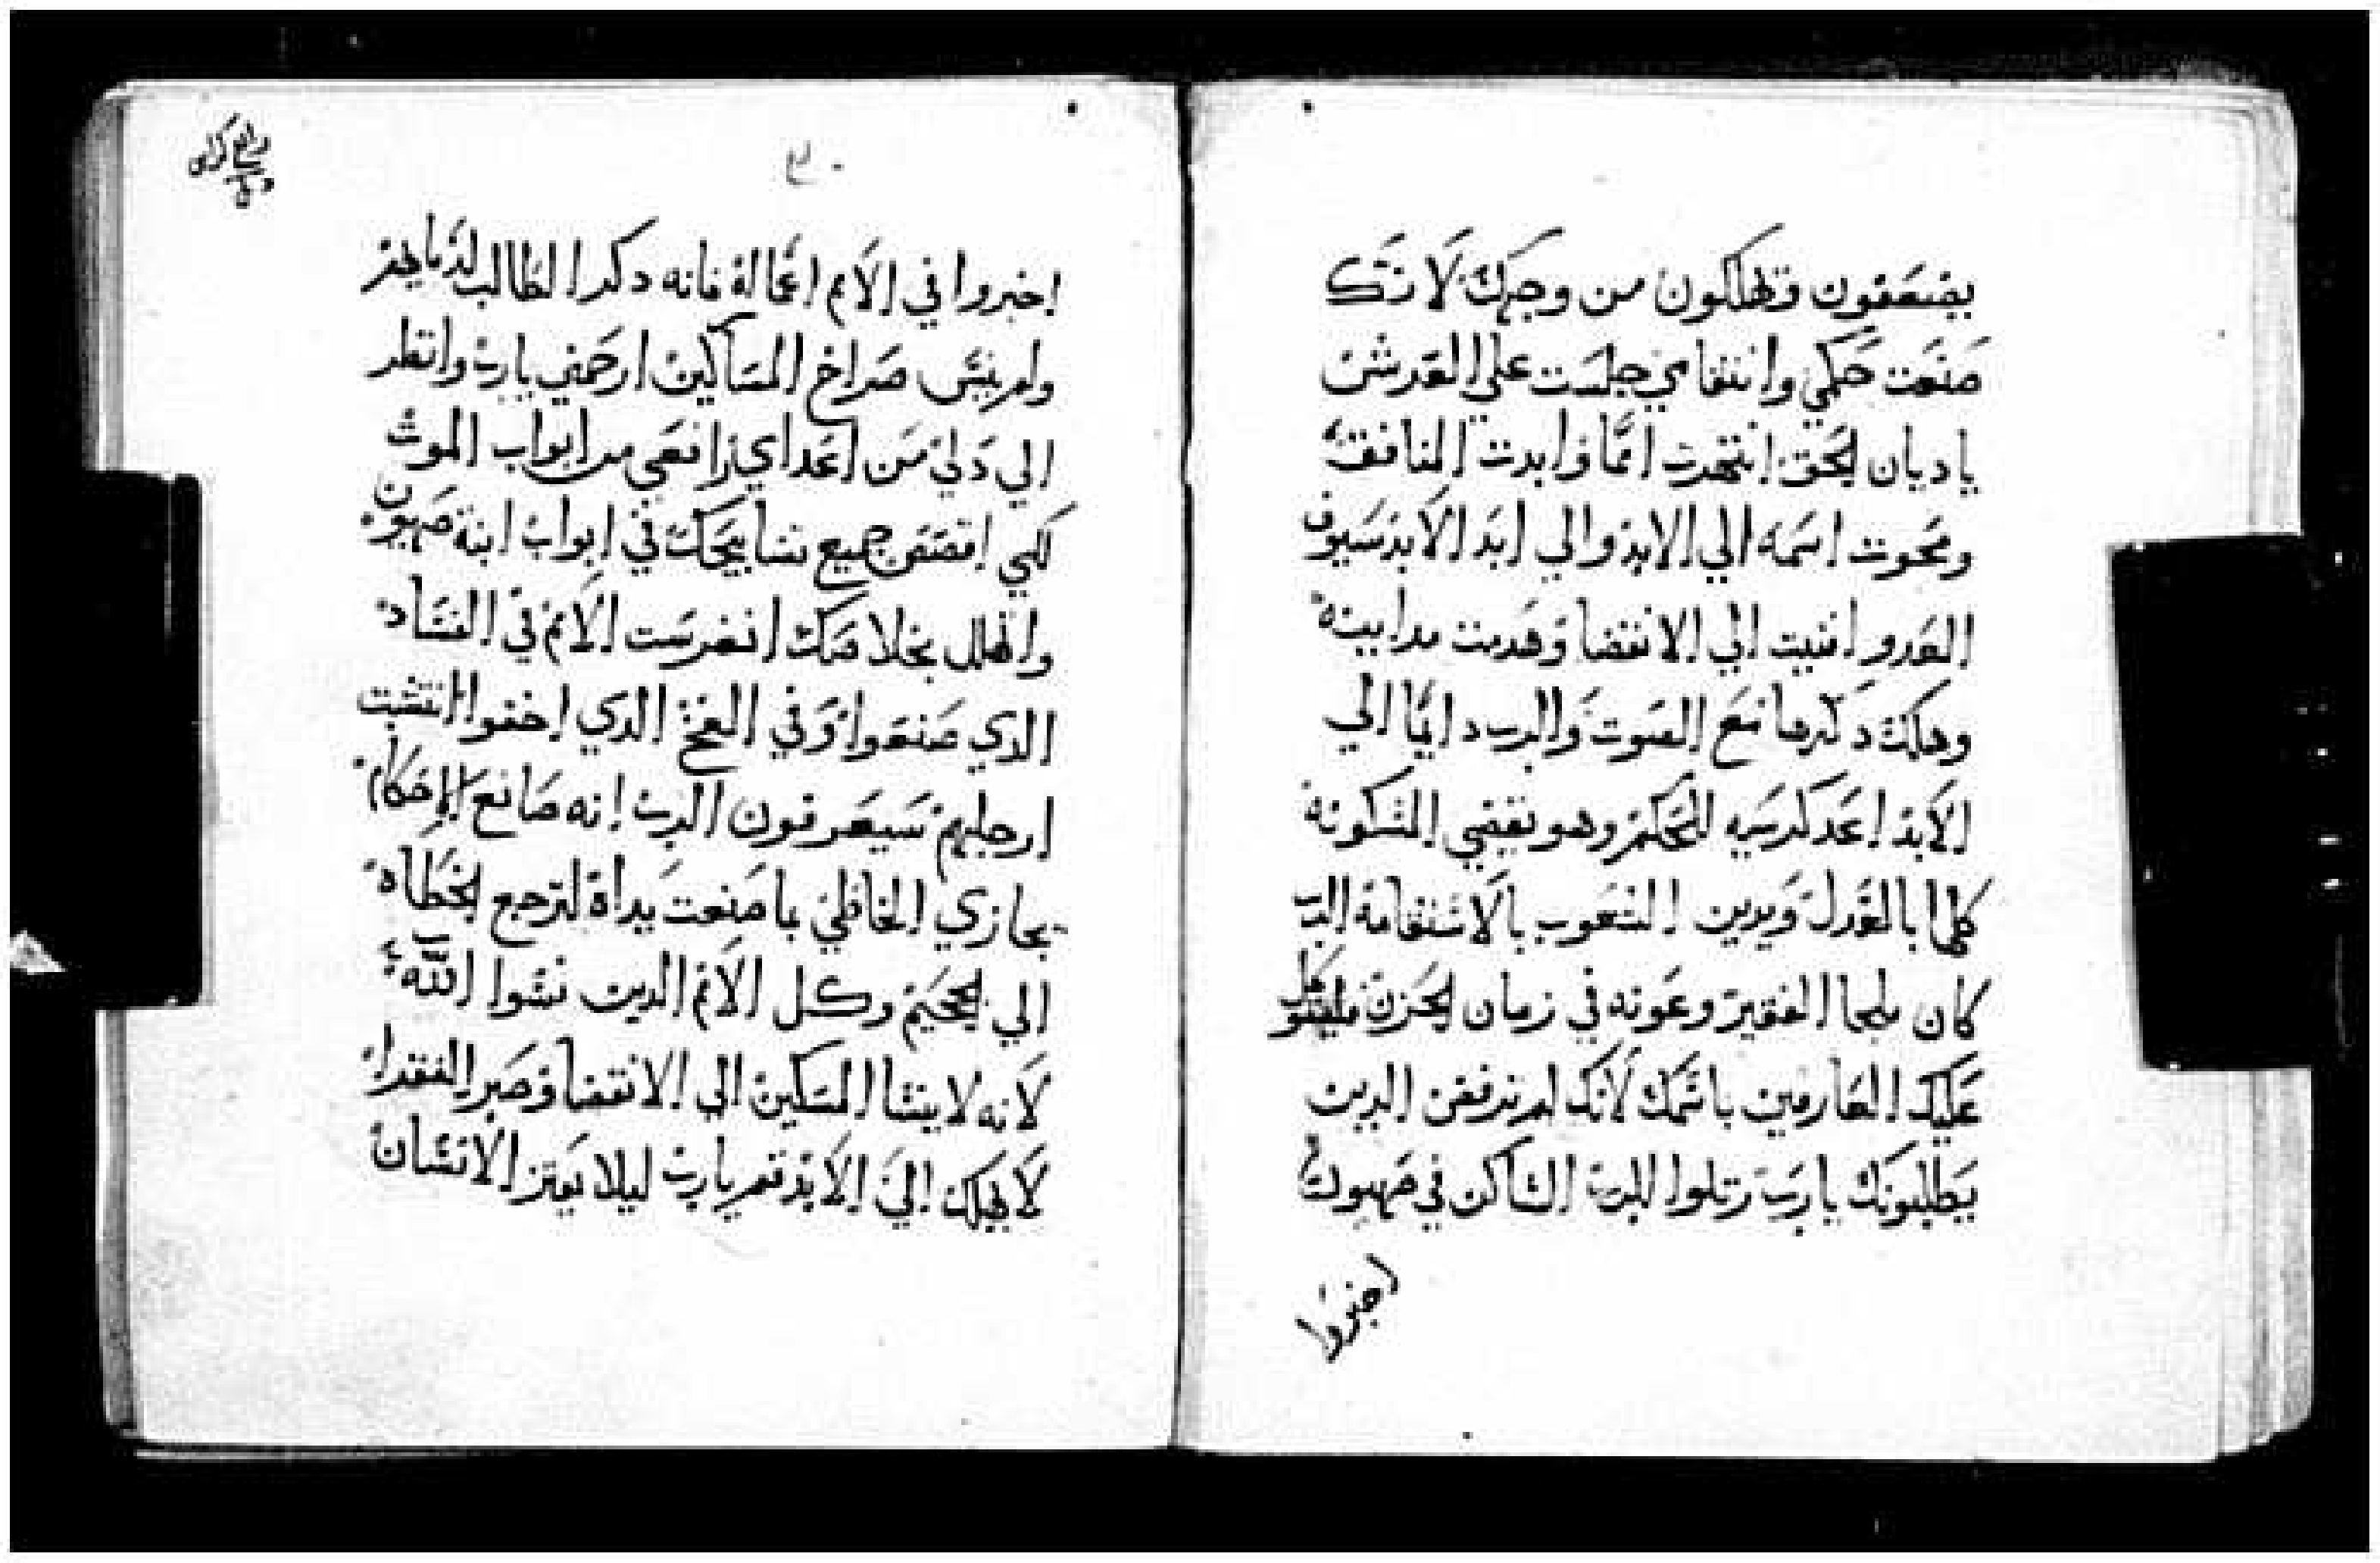 يضعفون وتهلكون من وجهك لانك
صنعت حكمي وانتقامي جلست علي العرش
ياديان الحق انتهرت امما وابدت المنافق
ومحوت اسمه الي الابد والي ابد الابد سيوف
العدو افنيت الي الانقضا وهدمت مداينه
وهلكت دكرها مع الصوت والرب دايما الي
الابد اعد كرسيه للحكم وهو يقضي المسكونة
كلها بالعدل ويدين الشعوب بالاستقامة الرب
كان ملجا الفقير وعونه في زمان الحزن فليتوكل
عليك العارفين باسمك لانك لم ترفض الدين
يطلبونك يارب رتلوا للرب الساكن في صهيون
اخبروا
اخبروا في الامم اعماله فانه دكر الطالب لدماهم
ولم ينس صراخ المساكين ارحمني يارب وانظر
الي دلي من اعداي يارافعي من ابواب الموت
لكي اقصص جميع تسابيحك في ابواب ابنة صهيون
واتهلل بخلاصك انغرست الامم في الفساد
الدي صنعوا وفي الفخ الدي اخفوا انتشبت
ارجلهم سيعرفون الرب انه صانع الاحكام
يجازي الخاطي با صنعت يداه لترجع الخطاه
الي الجحيم وكل الامم الدين نسوا الله
لانه لا ينسا المسكين الي الانقضا وصبر الفقرا
لا يهلك الي الابد قم يارب ليلا يعتز الانسان